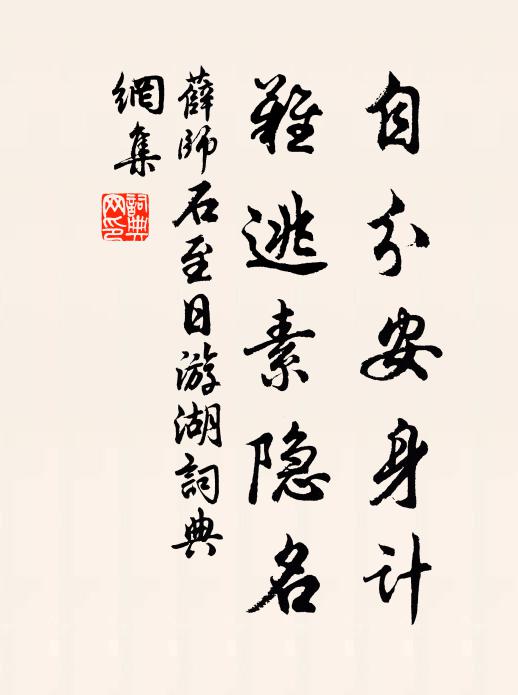 自分安身计
難逃素隐名
薛師石至日游湖詞典
網集
詞典网印